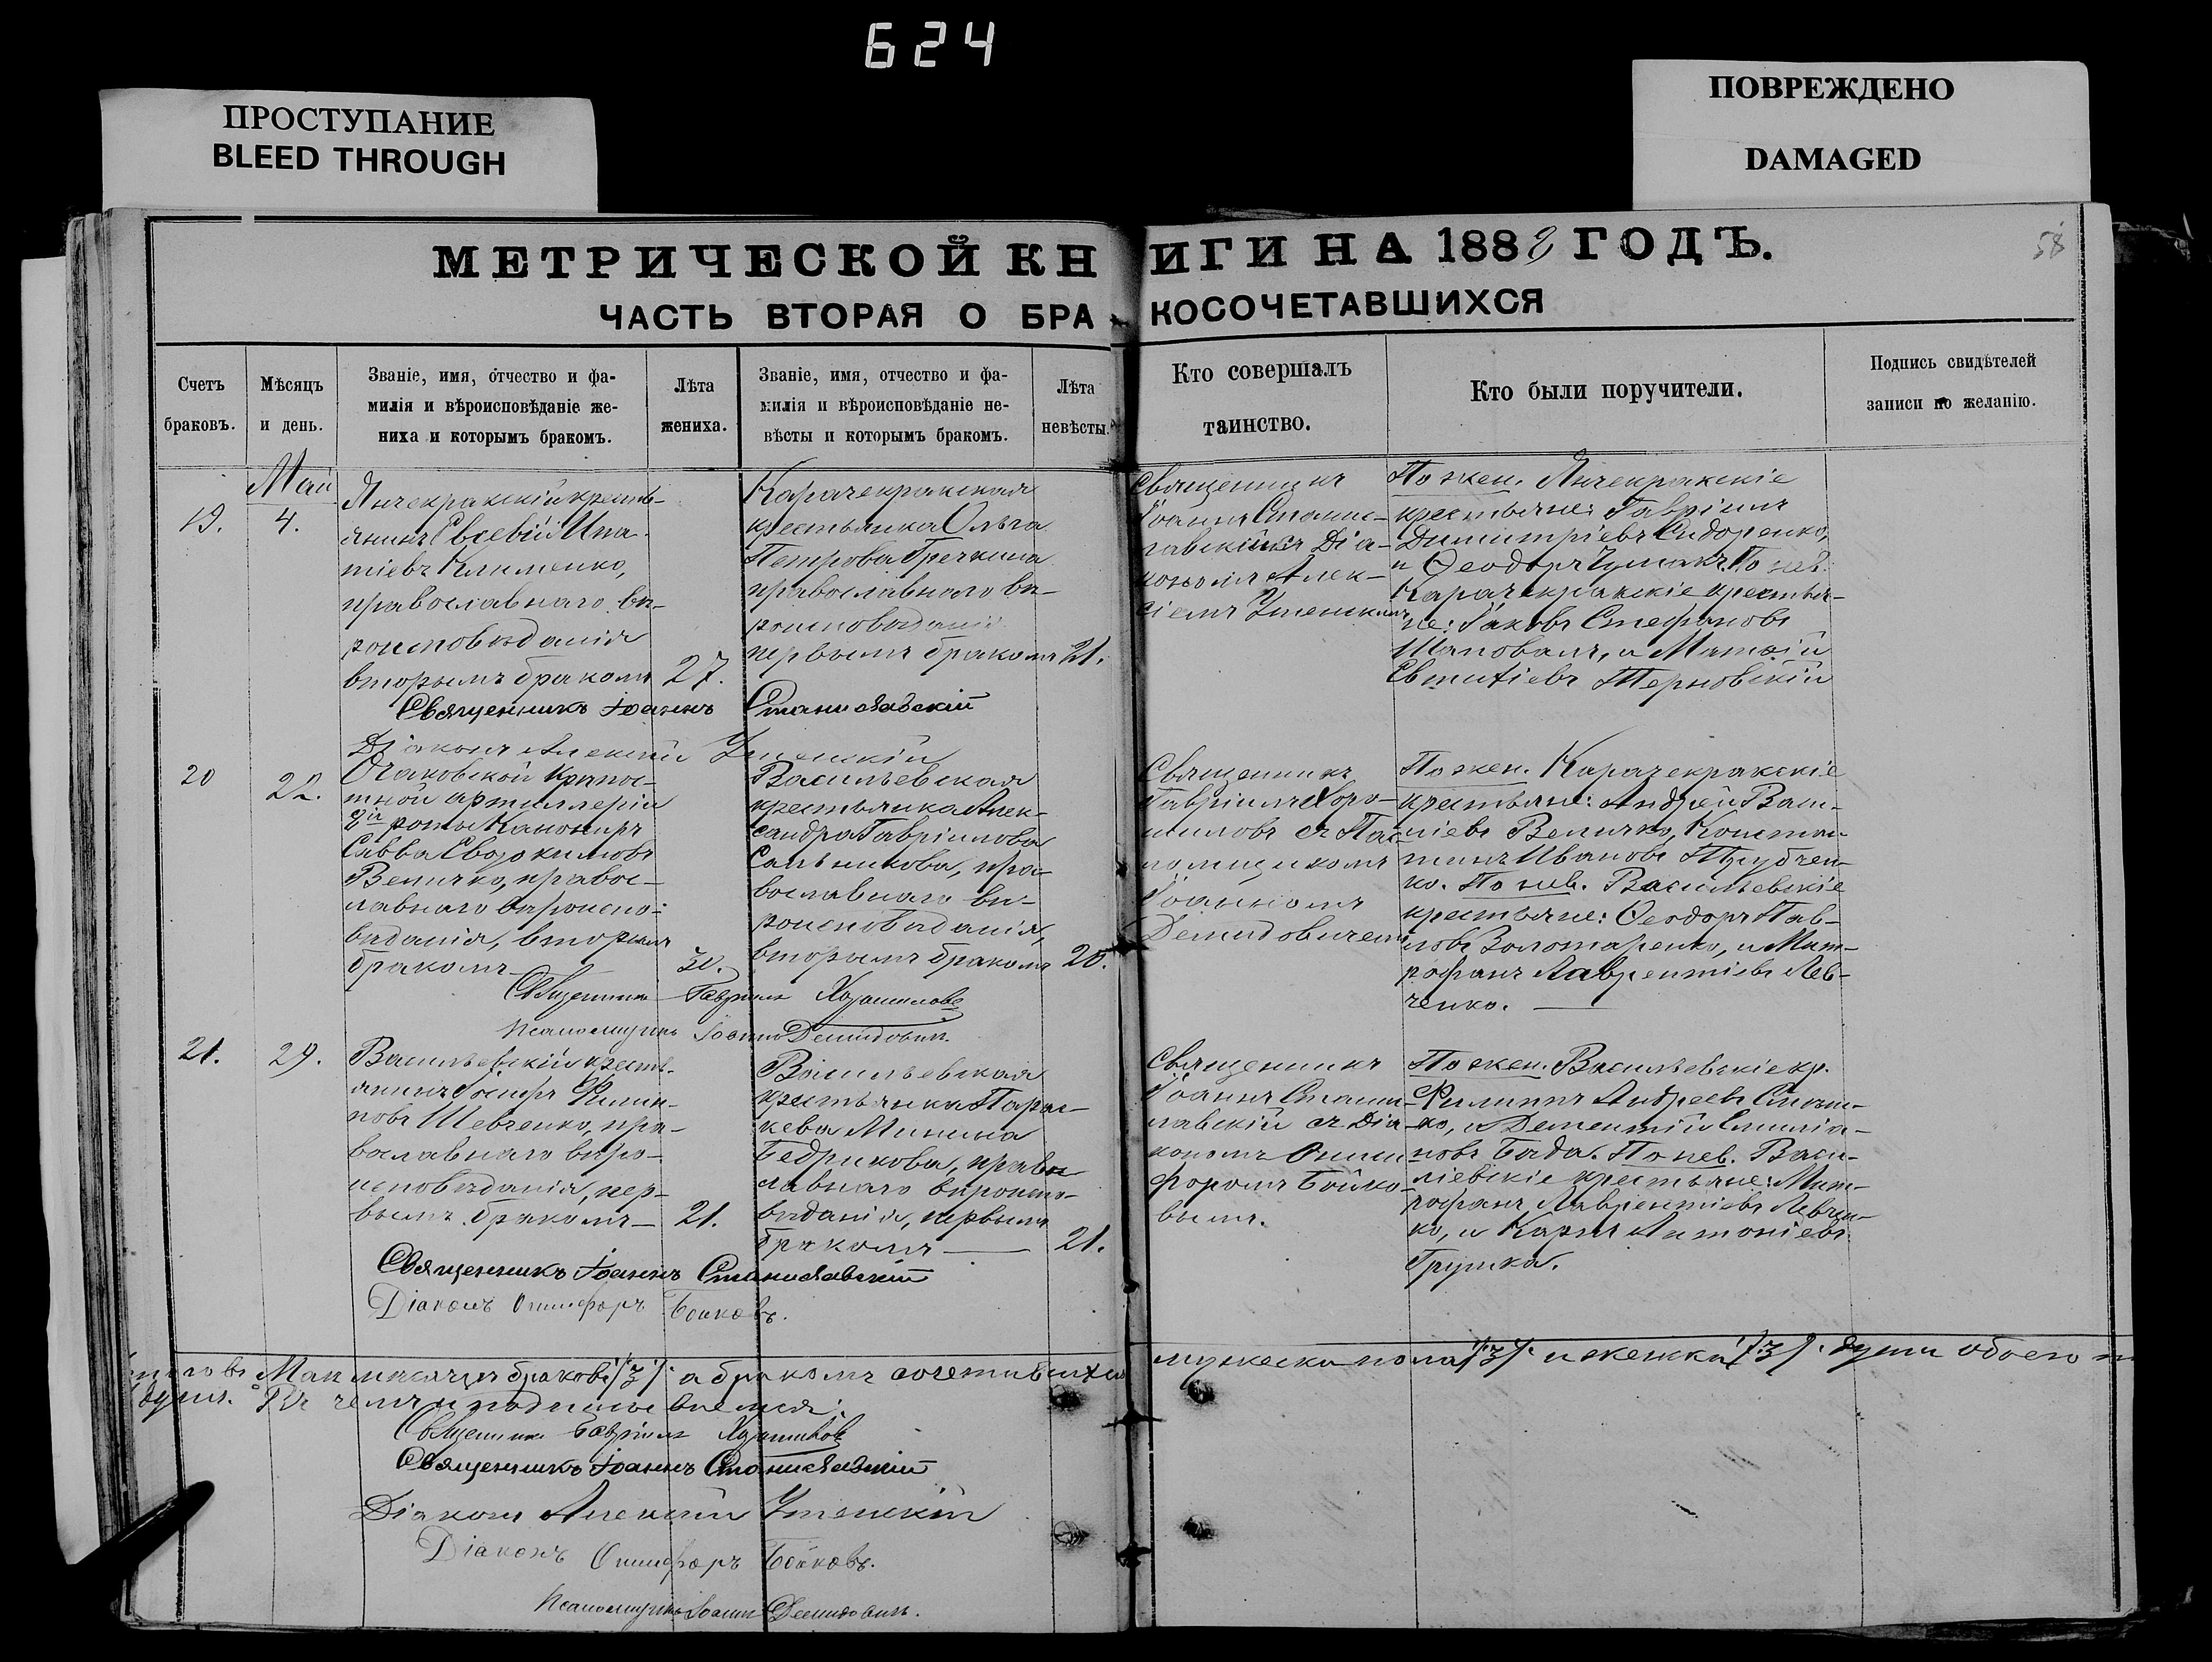 624
ПРОСТУПАНИЕ
BLEED THROUGH
ПОВРЕЖДЕНО
DAMAGED
58
МЕТРИЧЕСКОЙ КНИГИ НА 1882 ГОДЪ.
ЧАСТЬ ВТОРАЯ О БРАКОСОЧЕТАВШИХСЯ
Счетъ
браковъ.
Мѣсяцъ
и день.
Званіе, имя, отчество и фа-
милія и вѣроисповѣданіе же-
ниха и которымъ бракомъ.
Лѣта
жениха.
Званіе, имя, отчество и фа-
милія и вѣроисповѣданіе не-
вѣсты и которымъ бракомъ.
Лѣта
невѣсты.
Кто совершалъ
таинство.
Кто были поручители.
Подпись свидѣтелей
записи по желанію.
Май
19.
4.
Янчекракскій кресть-
янинъ Евсевій Ипа-
тіевъ Клименко,
православнаго вѣ-
роисповѣданія
вторымъ бракомъ
27.
Карачекракская
крестьянка Ольга
Петрова Гречкина
православнаго вѣ-
роисповѣданія
первымъ бракомъ
21.
Священникъ
Іоаннъ Станис-
лавскій съ Діа-
кономъ Алек-
сіемъ
По жен. Янчекракскіе
крестьяне: Гавріилъ
Димитріевъ Сидоренко,
и Ѳеодоръ Чумакъ. По нев.
Карачекракскіе крестья-
не: Іаковъ Стефановъ
Шаповалъ, и Матѳій
Евтихіевъ Терновскій
Священникъ Іоаннъ Станиславскій
Діаконъ Алексій
20
22.
Очаковской крѣпос-
тной артиллеріи
роты Канониръ
Савва Евдокимовъ
Величко, правос-
лавнаго вѣроиспо-
вѣданія, вторымъ
бракомъ
30.
Васильевская
крестьянка Алек-
сандра Гавріилова
Сальникова, пра-
вославнаго вѣ-
роисповѣданія,
вторымъ бракомъ
20.
Священникъ
Гавріилъ Хоро-
шиловъ съ Пса-
ломщикомъ
Іоанномъ
Демидовичемъ
По жен. Карачекракскіе
крестьяне: Андрей Васи-
ліевъ Величко, Констан-
тинъ Ивановъ
ко. По нев. Васильевскіе
крестьяне: Ѳеодоръ Пав-
ловъ Золотаренко, и Мит-
рофанъ Лаврентіевъ Лев-
ченко.
Священникъ Гавріилъ Хорошиловъ
Псаломщикъ Іоаннъ Демидовичъ
21.
29.
Васильевскій кресть-
янинъ Іосифъ Филип-
повъ Шевченко, пра-
вославнаго вѣро-
исповѣданія, пер-
вымъ бракомъ
21.
Васильевская
крестьянка Парас-
кева Минина
Бедрикова, право-
славнаго вѣроиспо-
вѣданія, первымъ
бракомъ
21.
Священникъ
Іоаннъ Станис-
лавскій съ Діа-
кономъ Ониси-
форомъ Бойко-
вымъ.
По жен. Васильевскіе кр.
Филиппъ Андреевъ
ко, и Дементій Емилія-
новъ Бѣда. По нев. Васи-
ліевскіе крестьяне: Мит-
рофанъ Лаврентіевъ Левчен-
ко, и Карпъ Антоніевъ
Грушка.
Священникъ Іоаннъ Станиславскій
Діаконъ Онисифоръ Бойковъ.
Итого въ Маѣ мѣсяцѣ браковъ /3/. а бракомъ сочетавшихся мужеска пола /3/. и женска /3/. душъ обоего
душъ. Въ чемъ и подписываемся:
Священникъ Гавріилъ Хорошиловъ
Священникъ Іоаннъ Станиславскій
Діаконъ Алексій
Діаконъ Онисифоръ Бойковъ.
Псаломщикъ Іоаннъ Демидовичъ.